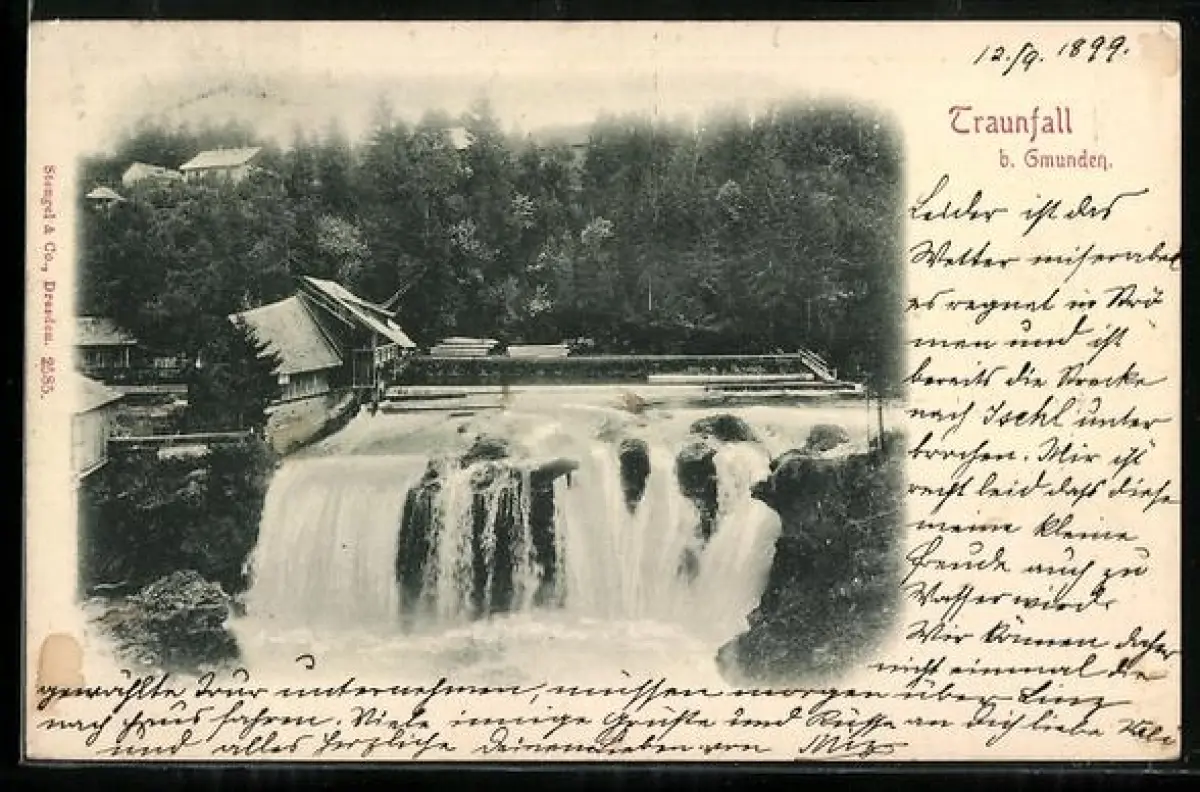 12./9. 1899.
Traunfall
b. Gmunden.
Stengel & Co., Dresden. 2585.
Leider ist das
Wetter miserabel
es regnet in Strö
men und ist
bereits die Strecke
nach Ischl unter
brochen. Mir ist
recht leid dass diese
meine kleine
Freude auch zu
Wasser wird.
Wir können daher
nicht einmal die
gewählte Tour unternehmen, müssen morgen über Linz
nach Haus fahren. Viele innige Grüße und Küsse an Dich liebe
und alles herzliche Deinen Lieben von Miz